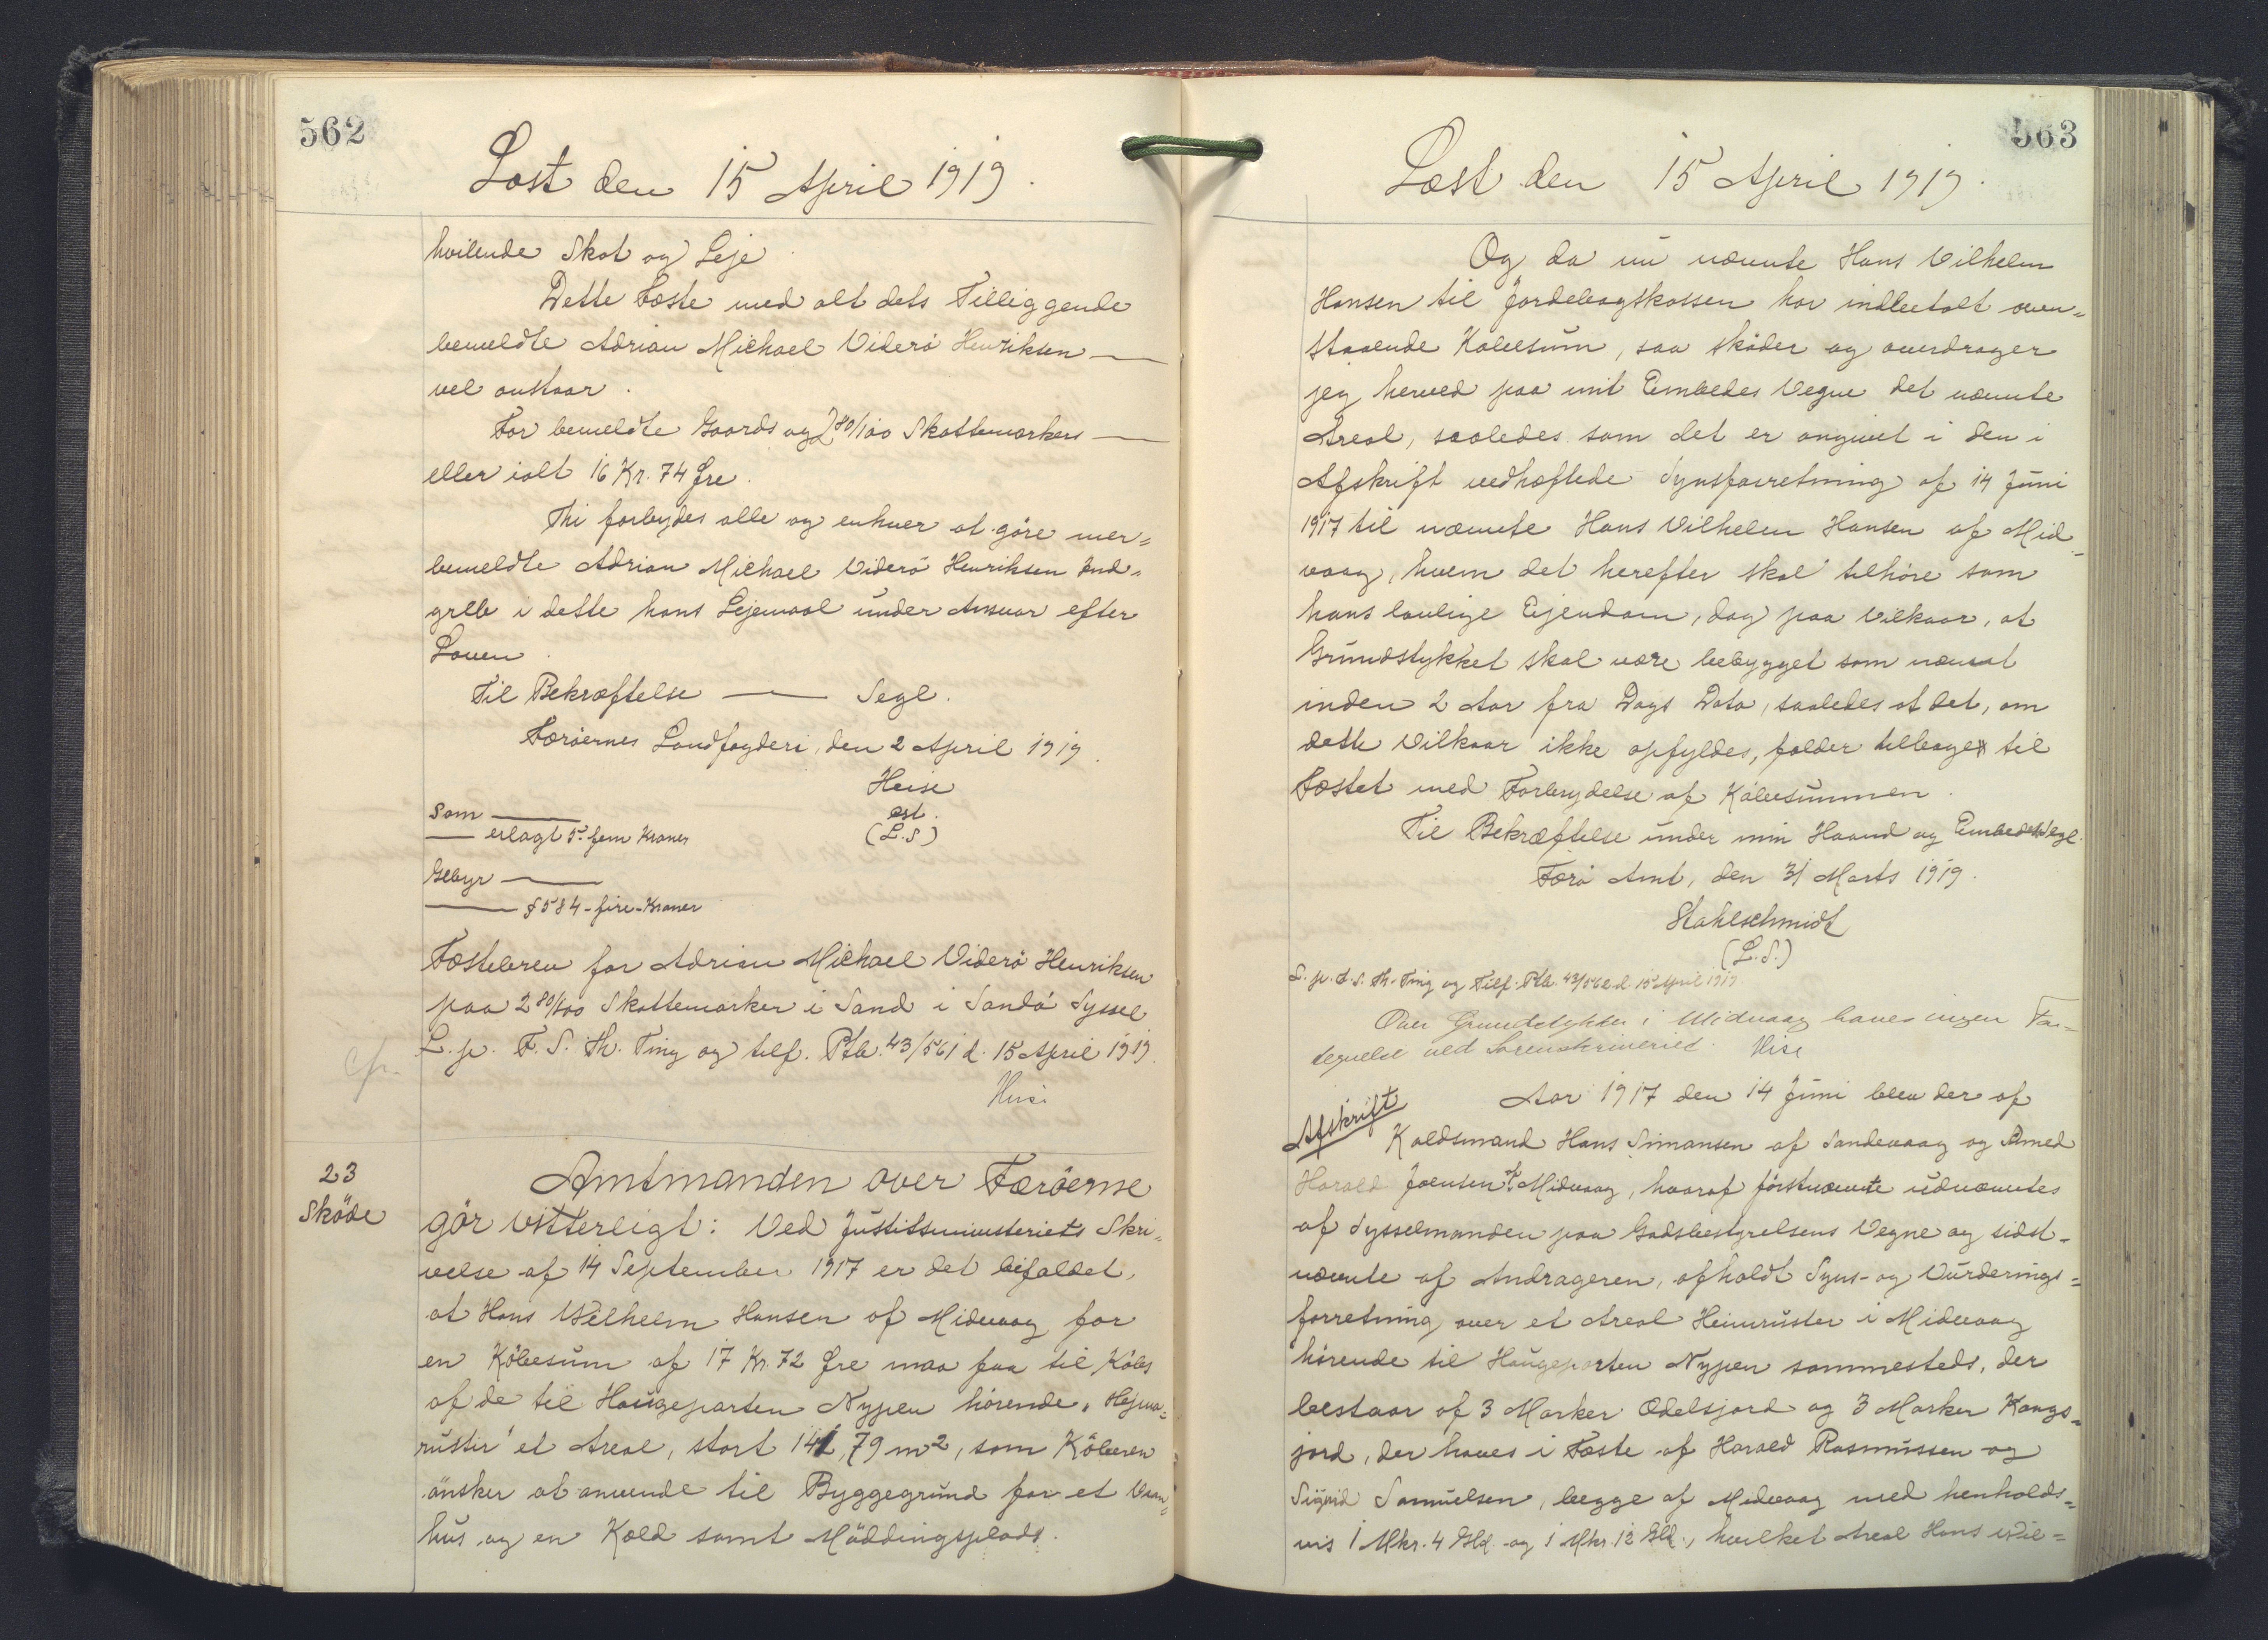 562
Læst den 15 April 1919.
hvilende Skat og Leje
Dette Fæste med alt dets Tilliggende
bemeldte Adrian Michael Viderö Henriksen —
vel anstaar.
For bemeldte Gaards og 2 80/100 Skattemarkers —
eller ialt 16 Kr. 74 Øre.
Thi forbydes alle og enhver at göre mer=
bemeldte Adrian Michael Viderö Henriksen Ind=
greb i dette hans Lejemaal under Ansvar efter
Loven.
Til Bekræftelse — Segl.
Færöernes Landfogderi, den 2 April 1919.
Heise
cst.
(L.S)
Som —
— erlagt 5. fem Kroner
Gebyr —
— § 58 4 - fire - Kroner
Fæstebrev for Adrian Michael Viderö Henriksen
paa 2 80/100 Skattemarker i Sand i Sandö Syssel
L. p. F. S. Th. Ting og tilf. Ptb. 43/561 d. 15 April 1919.
cfr.
Heise
23
Sköde
Amtmanden over Færöerne
gör vitterligt: Ved Justitsministeriets Skri=
velse af 14 September 1917 er det bifaldet,
at Hans Vilhelm Hansen af Midvaag for
en Köbesum af 17 Kr. 72 Øre maa faa til Köbs
af de til Haugeparten Nypen hörende „Hejma=
rustir" et Areal, stort 141,79 m², som Köberen
önsker at anvende til Byggegrund for et Vaan=
hus og en Kæld samt Möddingsplads.
563
Læst den 15 April 1919.
Og da nu nævnte Hans Vilhelm
Hansen til Jordebogskassen har indbetalt oven=
staaende Köbesum, saa sköder og overdrager
jeg herved paa mit Embedes Vegne det nævnte
Areal, saaledes som det er angivet i den i
Afskrift vedhæftede Synsforretning af 14 Juni
1917 til nævnte Hans Vilhelm Hansen af Mid=
vaag, hvem det herefter skal tilhöre som
hans lovlige Ejendom, dog paa Vilkaar, at
Grundstykket skal være bebygget som nævnt
inden 2 Aar fra Dags Dato, saaledes at det, om
dette Vilkaar ikke opfyldes, falder tilbage til
Fæstet med Forbrydelse af Köbesummen.
Til Bekræftelse under min Haand og Embedes Segl.
Færö Amt, den 31 Marts 1919.
Stahlschmidt
(L.S.)
L. p. d. S. Th. Ting og Tilf. Ptb. 43/562 d. 15 April 1919.
Over Grundstykker i Midvaag haves ingen For=
tegnelse ved Sorenskriveriet. Heise
Afskrift
Aar 1917 den 14 Juni blev der af
Kaldsmand Hans Simansen af Sandevaag og Amed
Harald Joensen af Midvaag, hvoraf förstnævnte udnævntes
af Sysselmanden paa Godsbestyrelsens Vegne og sidst=
nævnte af Andrageren, afholdt Syns- og Vurderings=
forretning over et Areal Heimruster i Midvaag
hörende til Haugeparten Nypen sammesteds, der
bestaar af 3 Marker Odelsjord og 3 Marker Kongs=
jord, der haves i Fæste af Harald Rasmussen og
Sigrid Samuelsen, begge af Midvaag med henholds=
vis 1 Mkr. 4 Gld og 1 Mkr. 12 Gld., hvilket Areal Hans Vil=